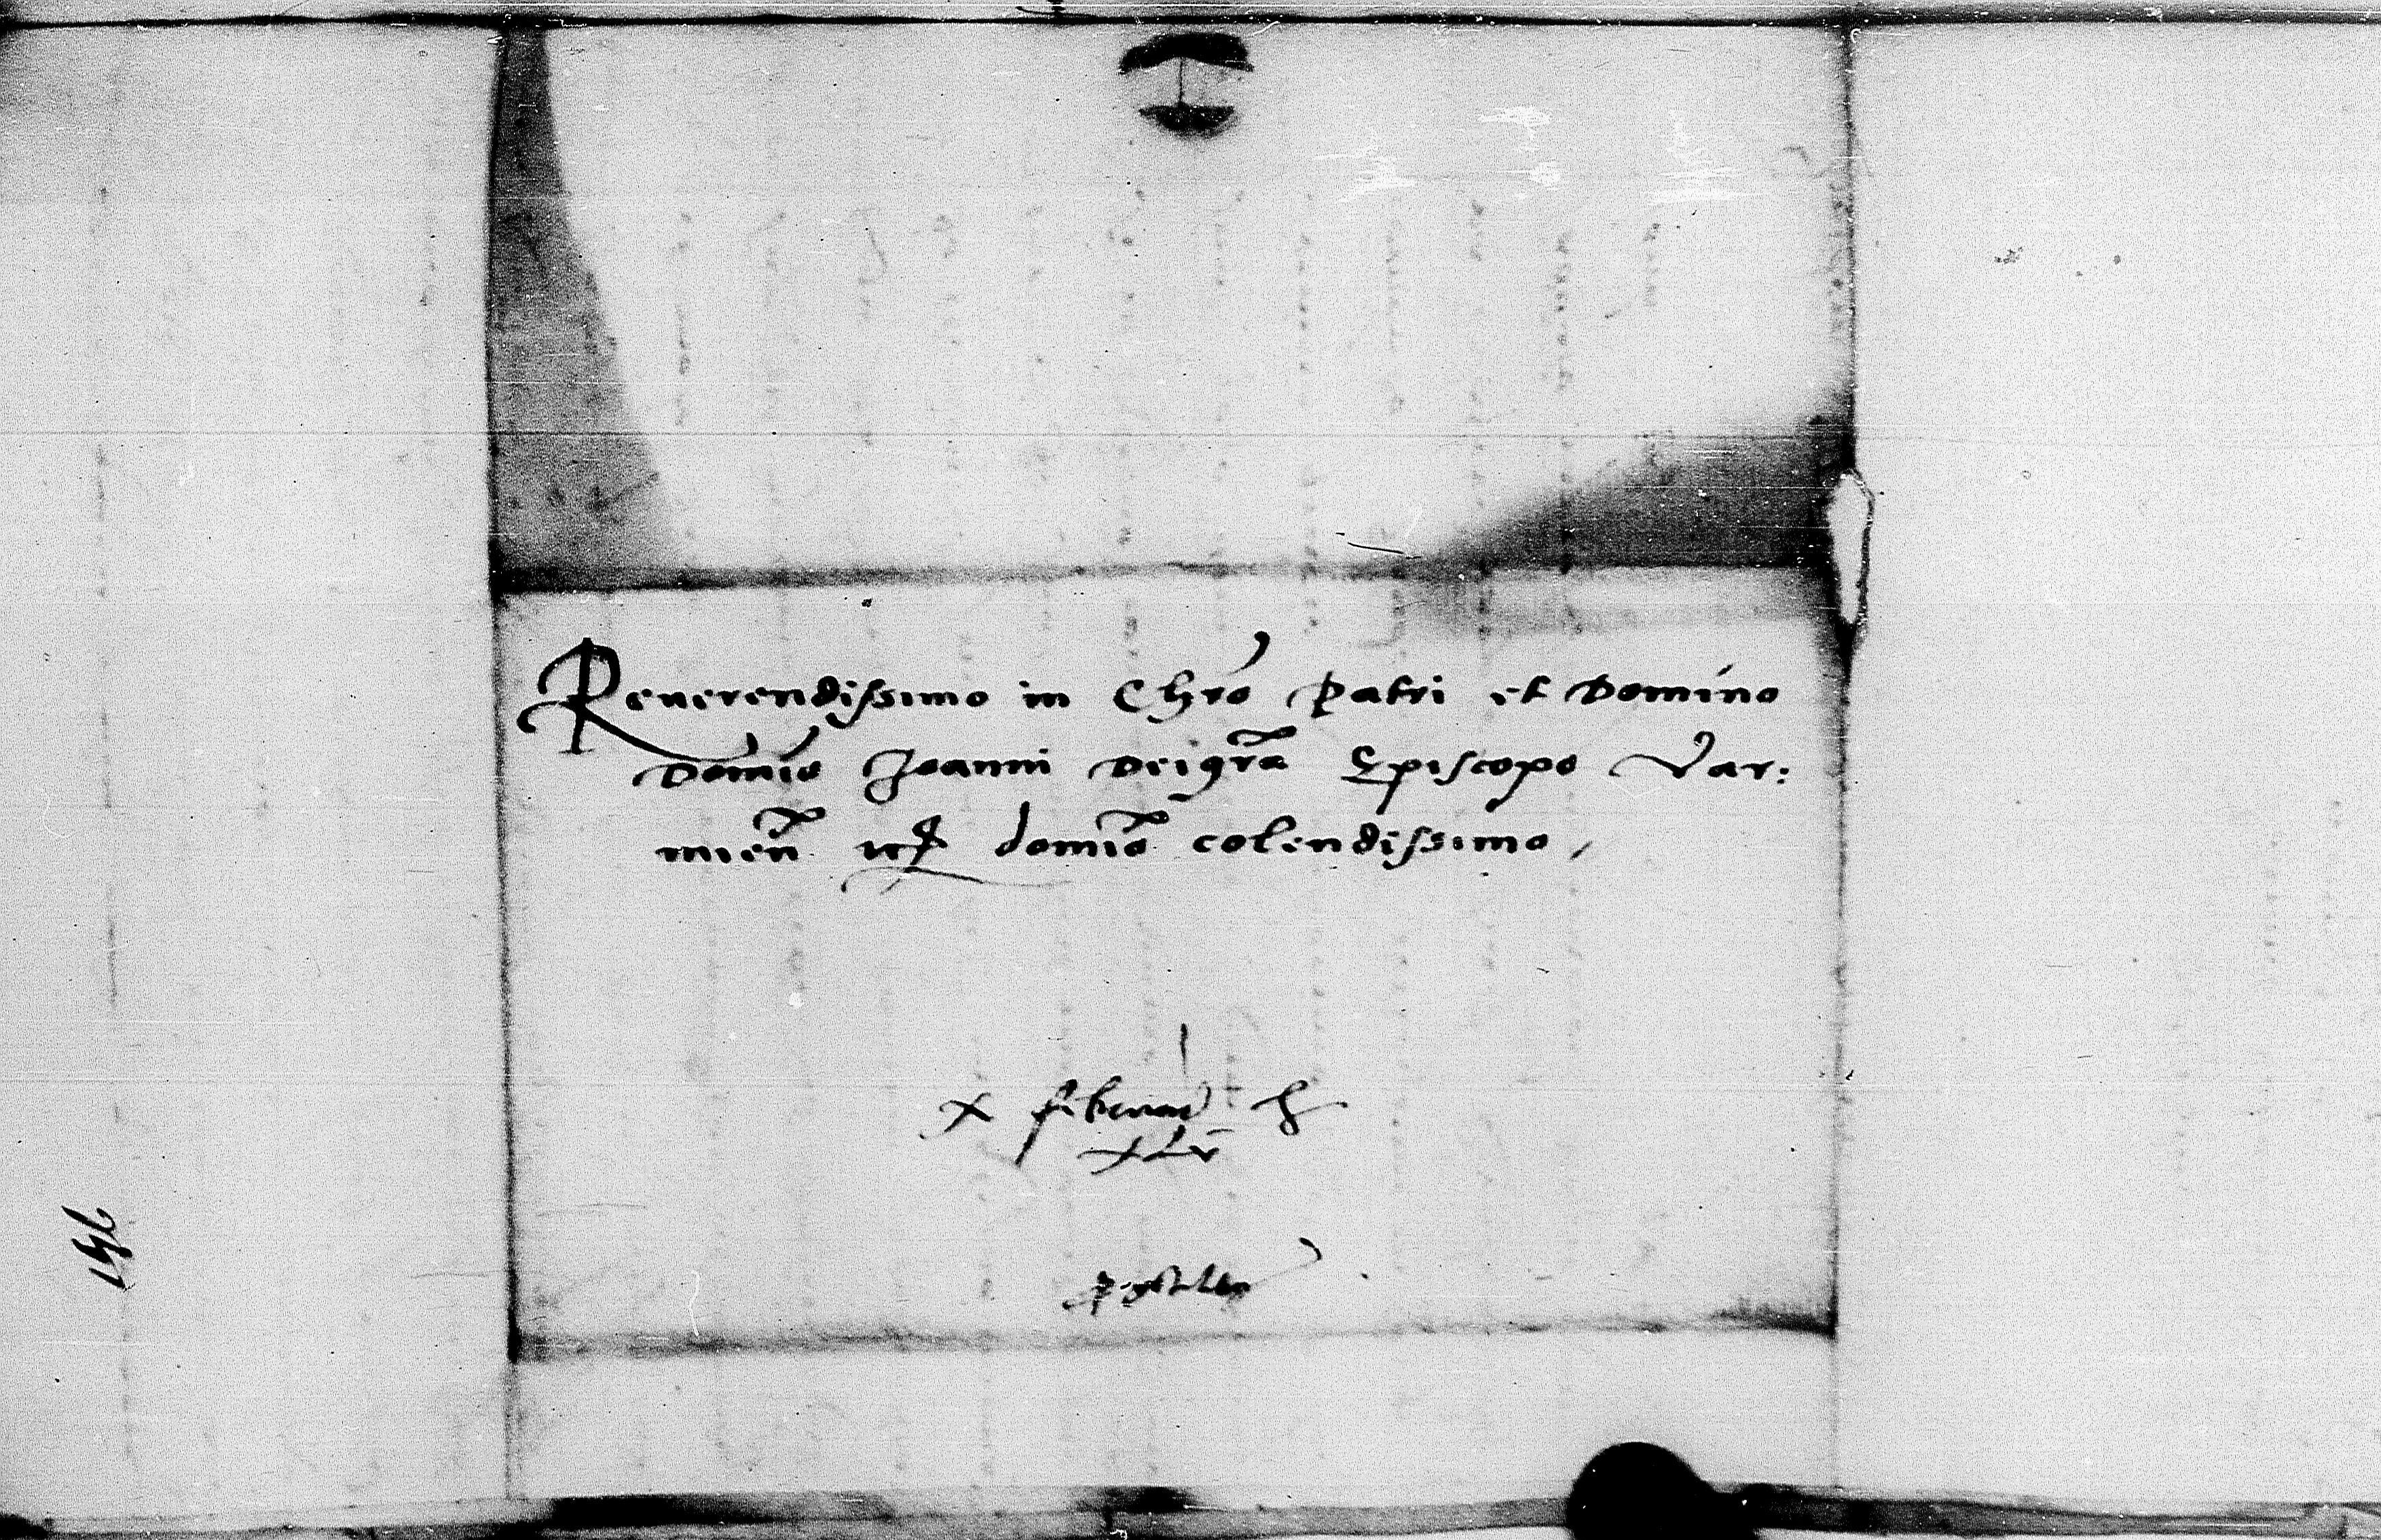 Reverendissimo in Chr̄o Patri et Domino
Domīo Joanni Dei gr̄a Episcopo Var:
mieñ Domīo colendissimo,
X februarii
XLV